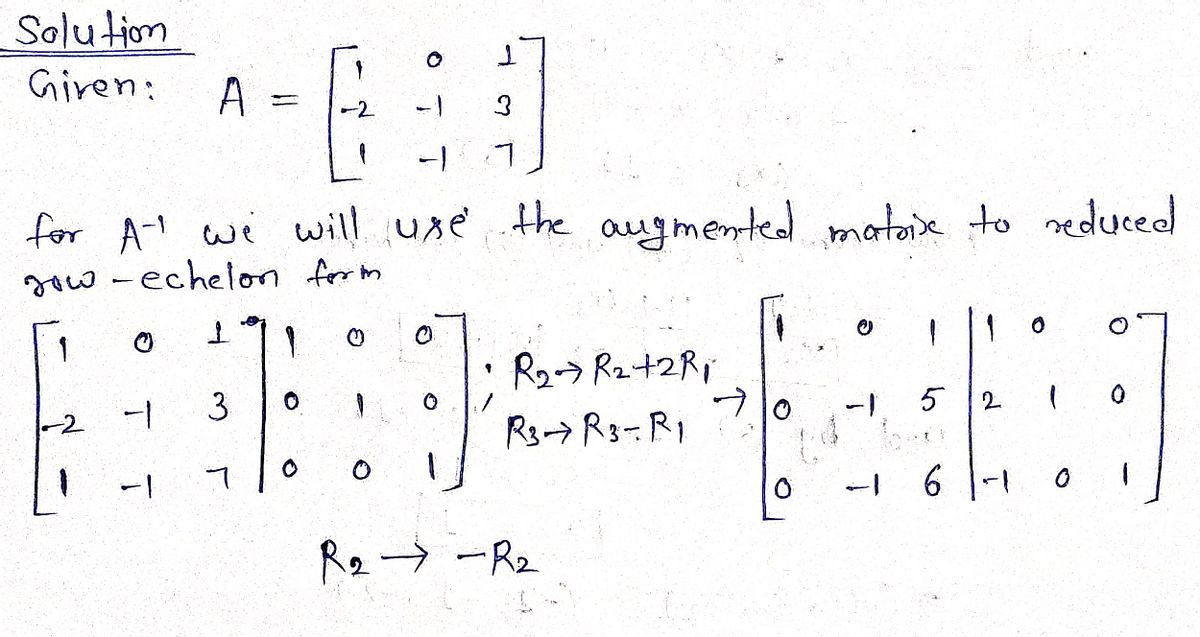 Solution
Given: A = [1 0 1
-2 -1 3
1 -1 7]
for A-1 we will use the augmented matrix to reduced
row-echelon form
[1 0 1 | 1 0 0 ; R2→R2+2R1 → [1 0 1 | 1 0 0
-2 -1 3 | 0 1 0 R3→R3-R1 0 -1 5 | 2 1 0
1 -1 7 | 0 0 1] 0 -1 6 | -1 0 1]
R2 → -R2